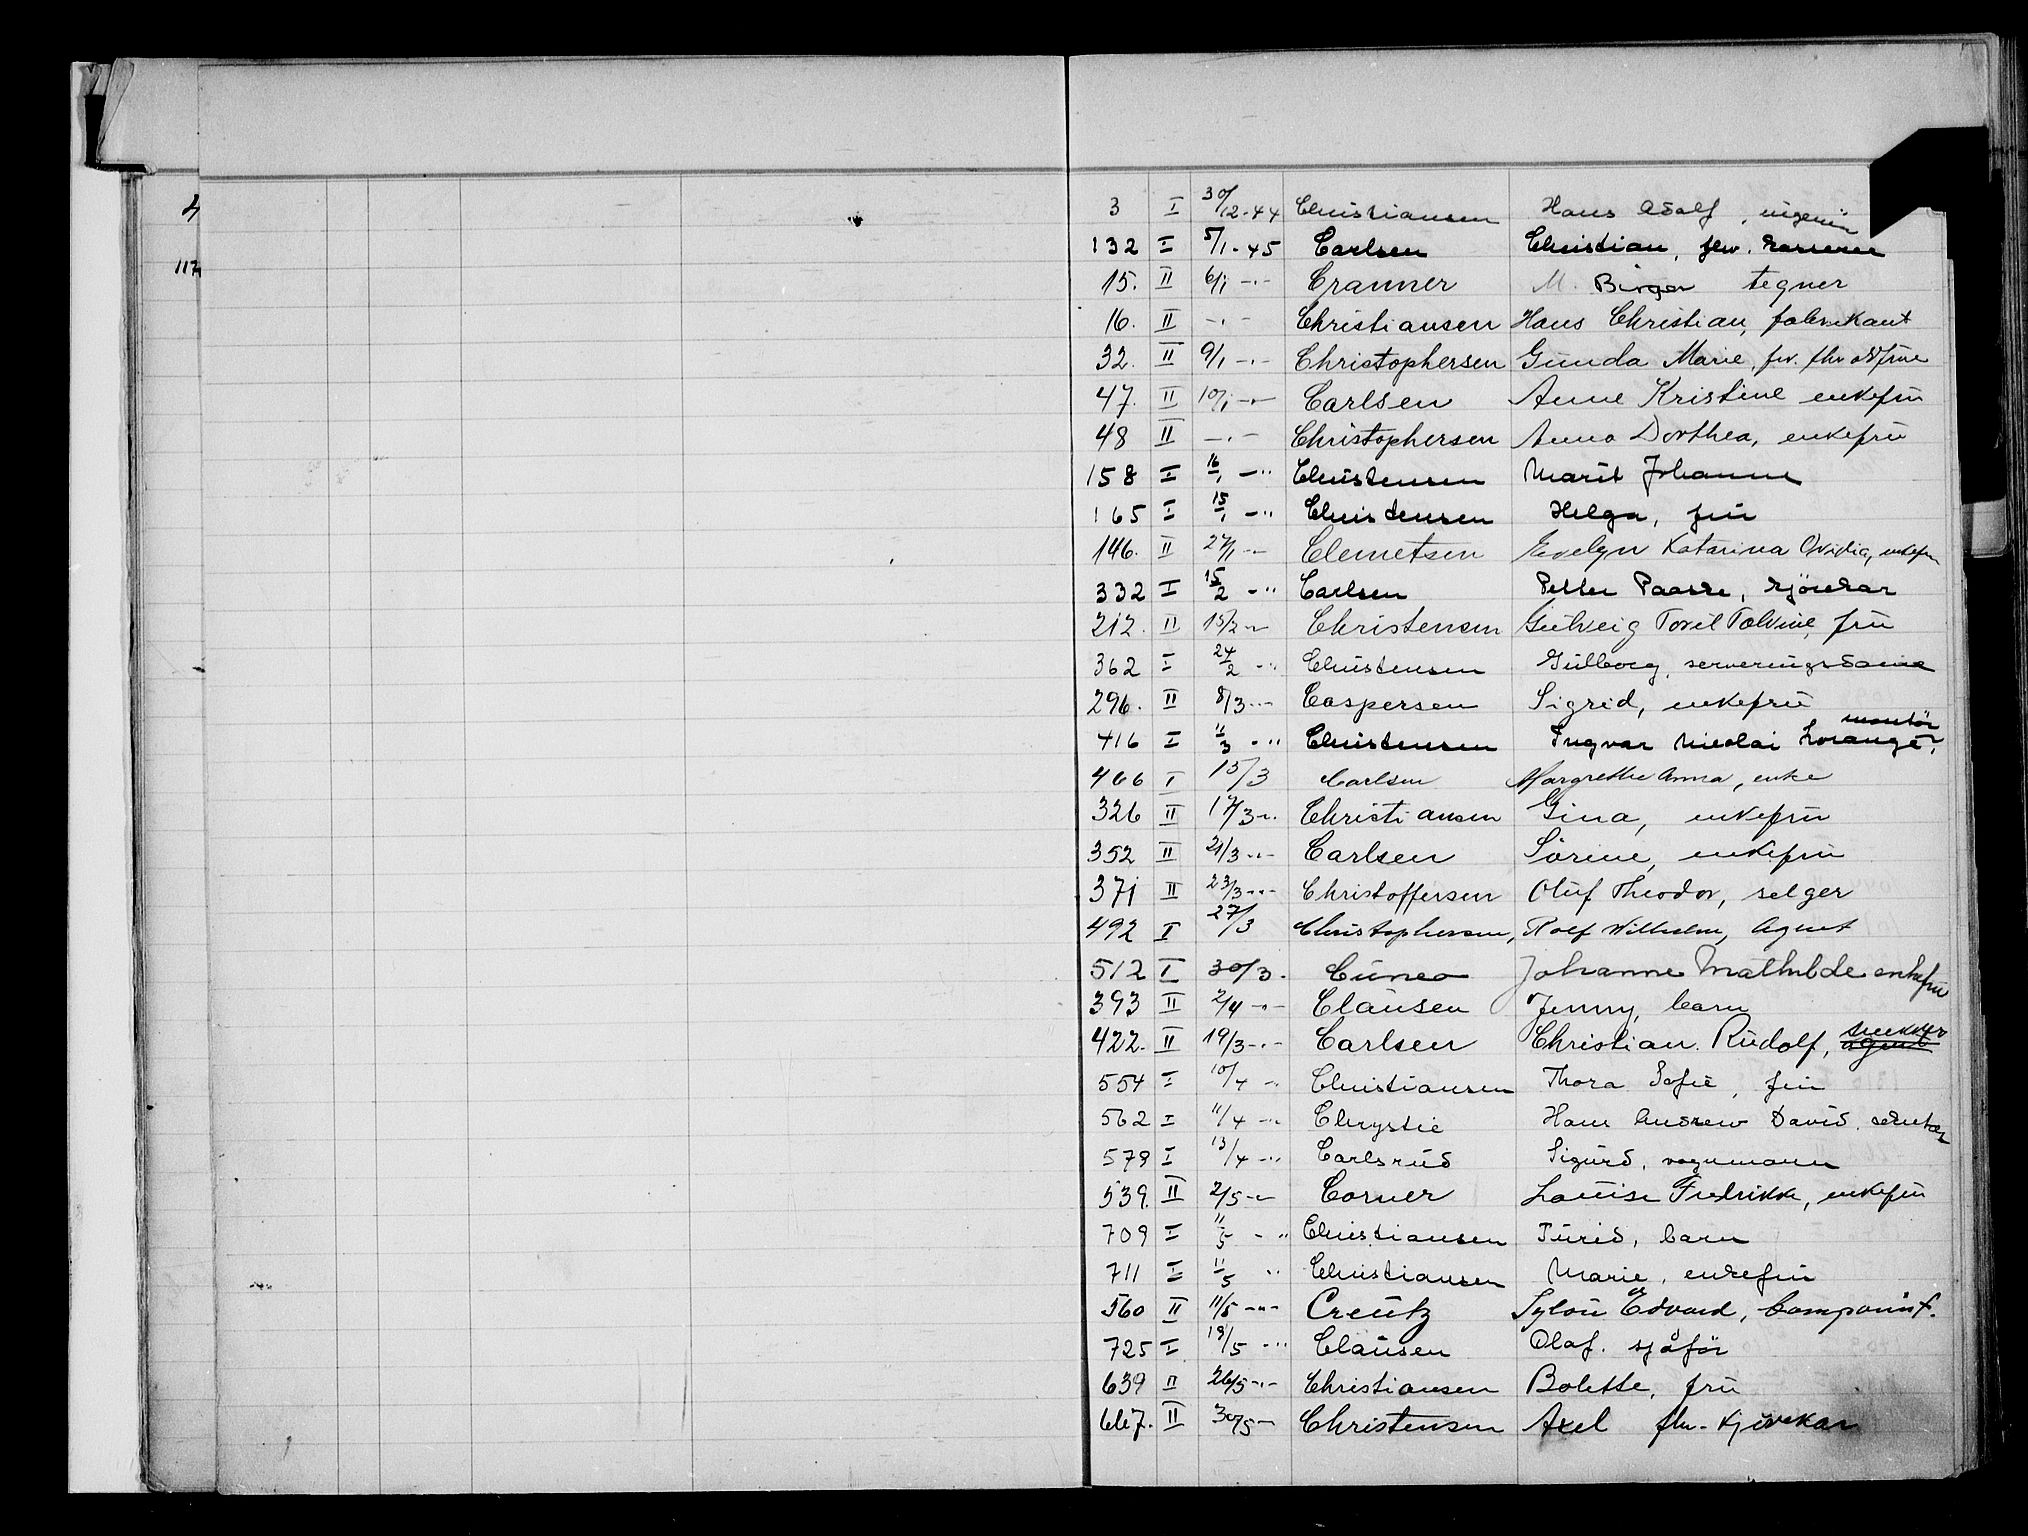 4
117
3 I 30/12-44 Christiansen Hans Adolf, ingeniör
132 I 5/1-45 Carlsen Christian, fhv. kasserer
15. II 6/1 -"- Cranner M. Birger tegner
16. II -"- Christiansen Hans Christian, fabrikant
32. II 9/1 -"- Christophersen Gunda Marie, fhv. oldfrue
47. II 10/1 -"- Carlsen Anne Kristine enkefru
48 II -"- Christophersen Anna Dorthea, enkefru
158 I 16/1 -"- Christensen Marit Johanne
165 I 15/1 -"- Christensen Helga, fru
146. II 27/1 -"- Clemetsen Evelyn Katarina Ovidia, enkefru
332 I 15/2 -"- Carlsen Petter Paaske, kjörekar
212. II 15/2 -"- Christensen Gulveig Toril Tolvine, fru
362 I 24/2 -"- Christensen Gulborg, serveringsdame
296. II 8/3 -"- Caspersen Sigrid, enkefru
416 I 11/3 -"- Christensen Ingvar Nicolai Lorange, montör
466 I 15/3 Carlsen Margrethe Anna, enke
326 II 17/3 -"- Christiansen Gina, enkefru
352 II 21/3 -"- Carlsen Sörine, enkefru
371 II 23/3 -"- Christoffersen Oluf Theodor, selger
492 I 27/3 Christophersen, Rolf Wilhelm, Agent
512 I 30/3. Cuneo Johanne Mathilde enkefru
393 II 2/4 -"- Clausen Jenny, barn
422. II 19/3 -"- Carlsen Christian Rudolf, agent snekker
554 I 10/4 -"- Christiansen Thora Sofie, fru
562 I 11/4 -"- Chrystie Hans Andrew David, sekretær
579 I 13/4 -"- Carlsrud Sigurd, vognmann
539. II 2/5 -"- Corner Louise Fredrikke, enkefru
709 I 11/5 -"- Christiansen Turid, barn
711 I 11/5 " Christiansen Marie, enkefru
560 II 11/5 -"- Creutz Sylou Edvard, Componist.
725 I 18/5 -"- Clausen Olaf. sjåför
639 II 26/5 -"- Christiansen Bolette, fru
667. II 30/5 - Christensen Axel fhv. kjörekar